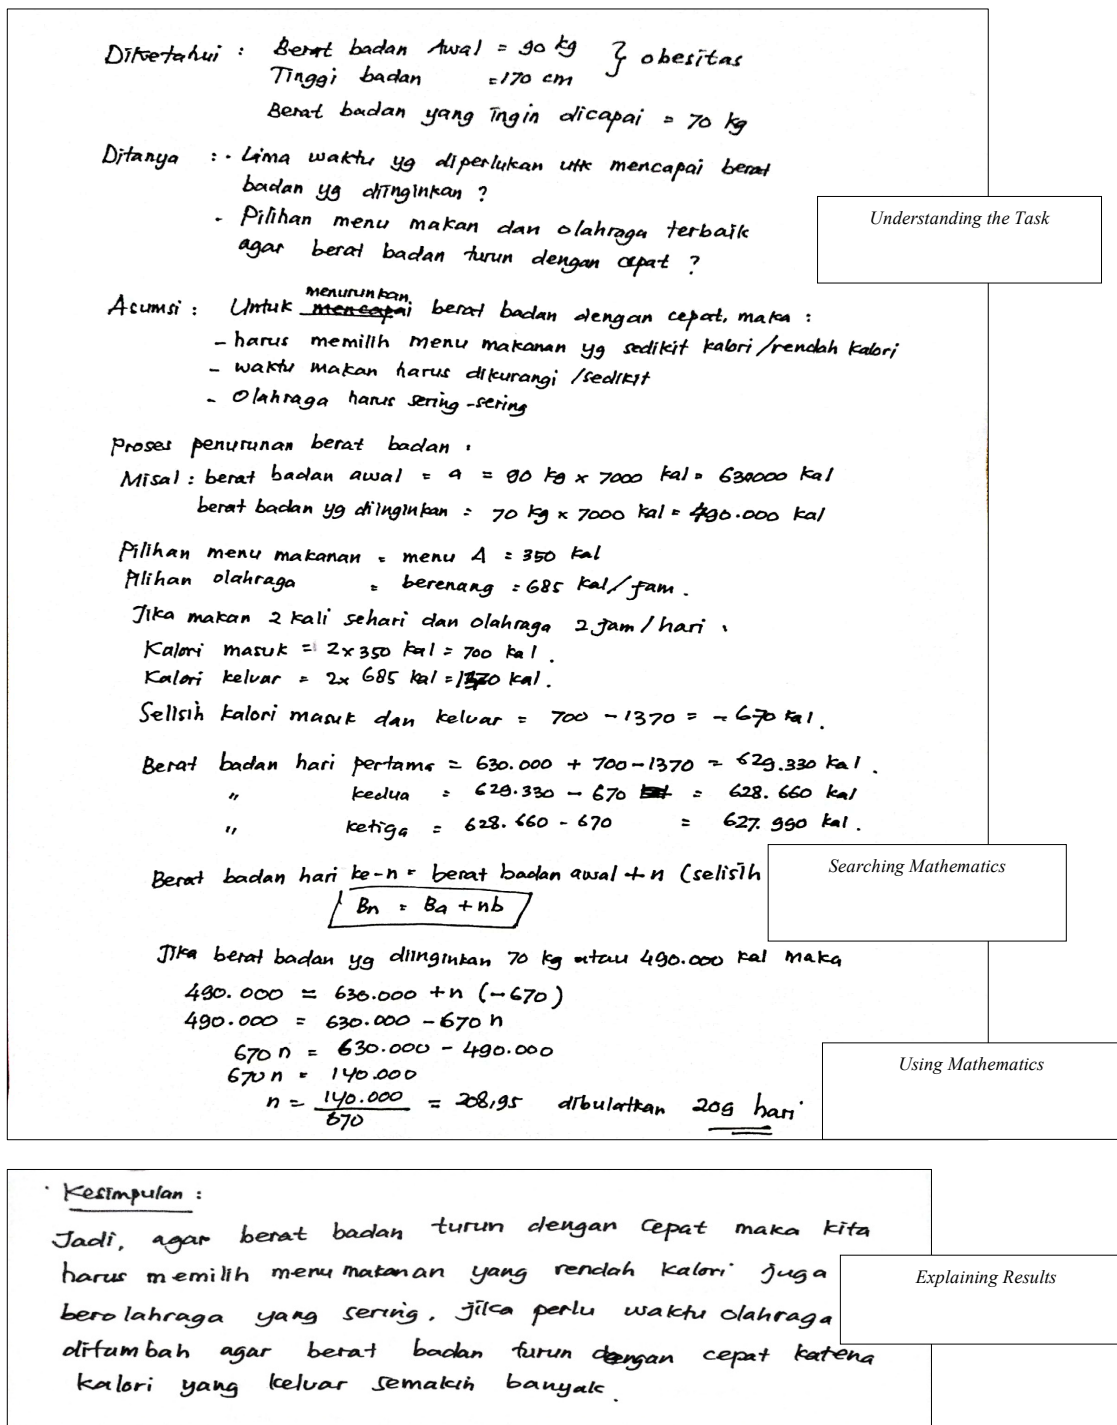 Diketahui : Berat badan Awal = 90 kg } obesitas
Tinggi badan = 170 cm
Berat badan yang ingin dicapai = 70 kg
Ditanya : - Lama waktu yg diperlukan utk mencapai berat
badan yg diinginkan ?
- Pilihan menu makan dan olahraga terbaik
agar berat badan turun dengan cepat ?
Understanding the Task
Asumsi : Untuk menurunkan berat badan dengan cepat, maka :
- harus memilih menu makanan yg sedikit kalori / rendah kalori
- waktu makan harus dikurangi / sedikit
- Olahraga harus sering-sering
Proses penurunan berat badan .
Misal : berat badan awal = a = 90 kg x 7000 kal = 630000 kal
berat badan yg diinginkan = 70 kg x 7000 kal = 490.000 kal
Pilihan menu makanan = menu A = 350 kal
Pilihan olahraga = berenang = 685 kal/jam .
Jika makan 2 kali sehari dan olahraga 2 jam / hari .
Kalori masuk = 2 x 350 kal = 700 kal .
Kalori keluar = 2 x 685 kal = 1370 kal .
Selisih kalori masuk dan keluar = 700 - 1370 = - 670 kal .
Berat badan hari pertama = 630.000 + 700 - 1370 = 629.330 kal .
" kedua = 629.330 - 670 = 628.660 kal
" ketiga = 628.660 - 670 = 627.990 kal .
Berat badan hari ke-n = berat badan awal + n (selisih
Searching Mathematics
Bn = Ba + nb
Jika berat badan yg diinginkan 70 kg atau 490.000 kal maka
490.000 = 630.000 + n (-670)
490.000 = 630.000 - 670 n
670 n = 630.000 - 490.000
670 n = 140.000
n = 140.000 / 670 = 208,95 dibulatkan 209 hari
Using Mathematics
Kesimpulan :
Jadi, agar berat badan turun dengan cepat maka kita
harus memilih menu makanan yang rendah kalori juga
berolahraga yang sering. jika perlu waktu olahraga
ditambah agar berat badan turun dengan cepat karena
kalori yang keluar semakin banyak .
Explaining Results